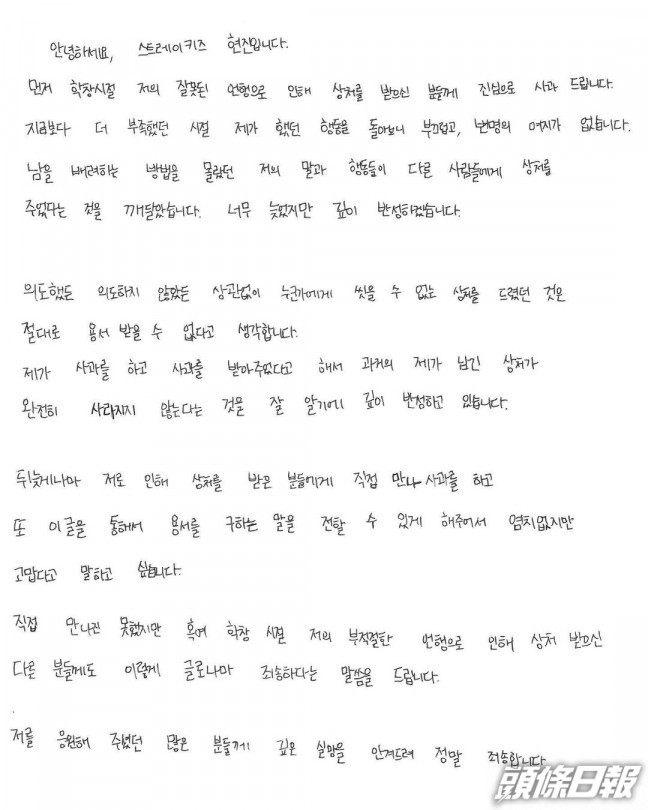 안녕하세요, 스트레이키즈 현진입니다.
먼저 학창시절 저의 잘못된 언행으로 인해 상처를 받으신 분들께 진심으로 사과 드립니다.
지금보다 더 부족했던 시절 제가 했던 행동을 돌아보니 부끄럽고, 변명의 여지가 없습니다.
남을 배려하는 방법을 몰랐던 저의 말과 행동들이 다른 사람들에게 상처를
주었다는 것을 깨달았습니다. 너무 늦었지만 깊이 반성하겠습니다.
의도했든 의도하지 않았든 상관없이 누군가에게 씻을 수 없는 상처를 드렸던 것은
절대로 용서 받을 수 없다고 생각합니다.
제가 사과를 하고 사과를 받아주었다고 해서 과거의 제가 남긴 상처가
완전히 사라지지 않는다는 것을 잘 알기에 깊이 반성하고 있습니다.
뒤늦게나마 저로 인해 상처를 받은 분들에게 직접 만나 사과를 하고
또 이 글을 통해서 용서를 구하는 말을 전할 수 있게 해주어서 염치없지만
고맙다고 말하고 싶습니다.
직접 만나진 못했지만 혹여 학창 시절 저의 부적절한 언행으로 인해 상처 받으신
다른 분들께도 이렇게 글로나마 죄송하다는 말씀을 드립니다.
저를 응원해 주셨던 많은 분들께 깊은 실망을 안겨드려 정말 죄송합니다
頭條日報